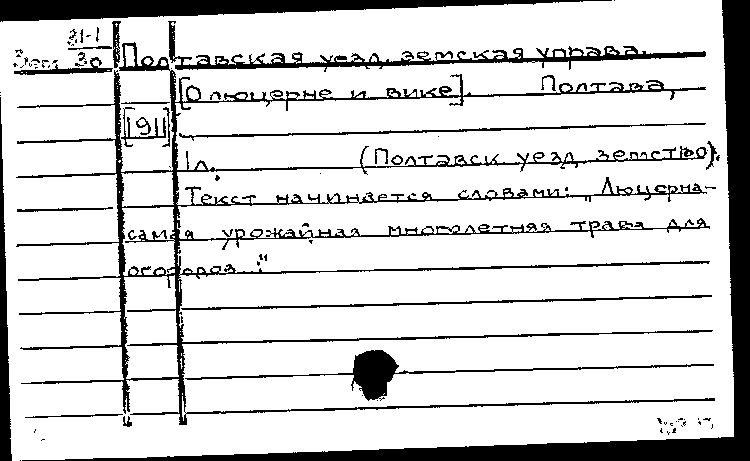 31-1
Зем. 30 Полтавская уезд. земская управа.
[О люцерне и вике]. Полтава,
[1911]
1л. (Полтавск уезд земство).
Текст начинается словами: „Люцерна-
самая урожайная многолетняя трава для
огородов..."